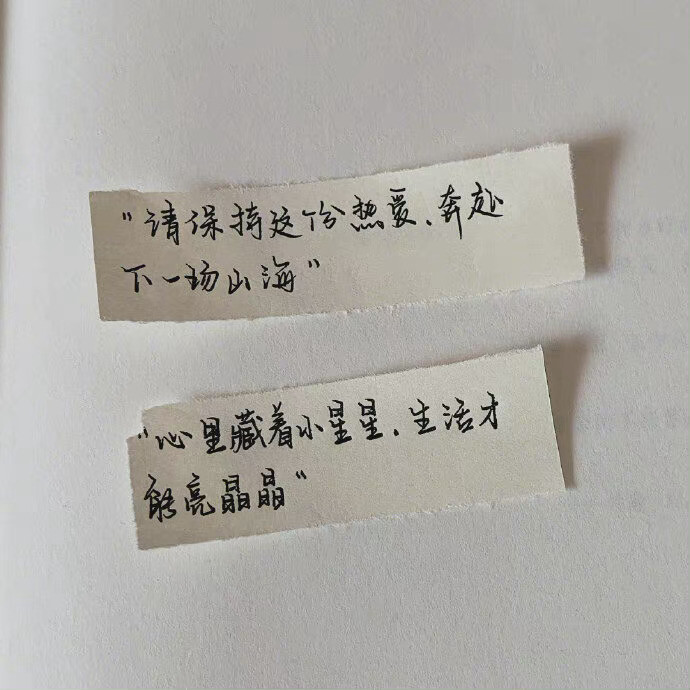 "请保持这份热爱,奔赴
下一场山海"
"心里藏着小星星,生活才
能亮晶晶"